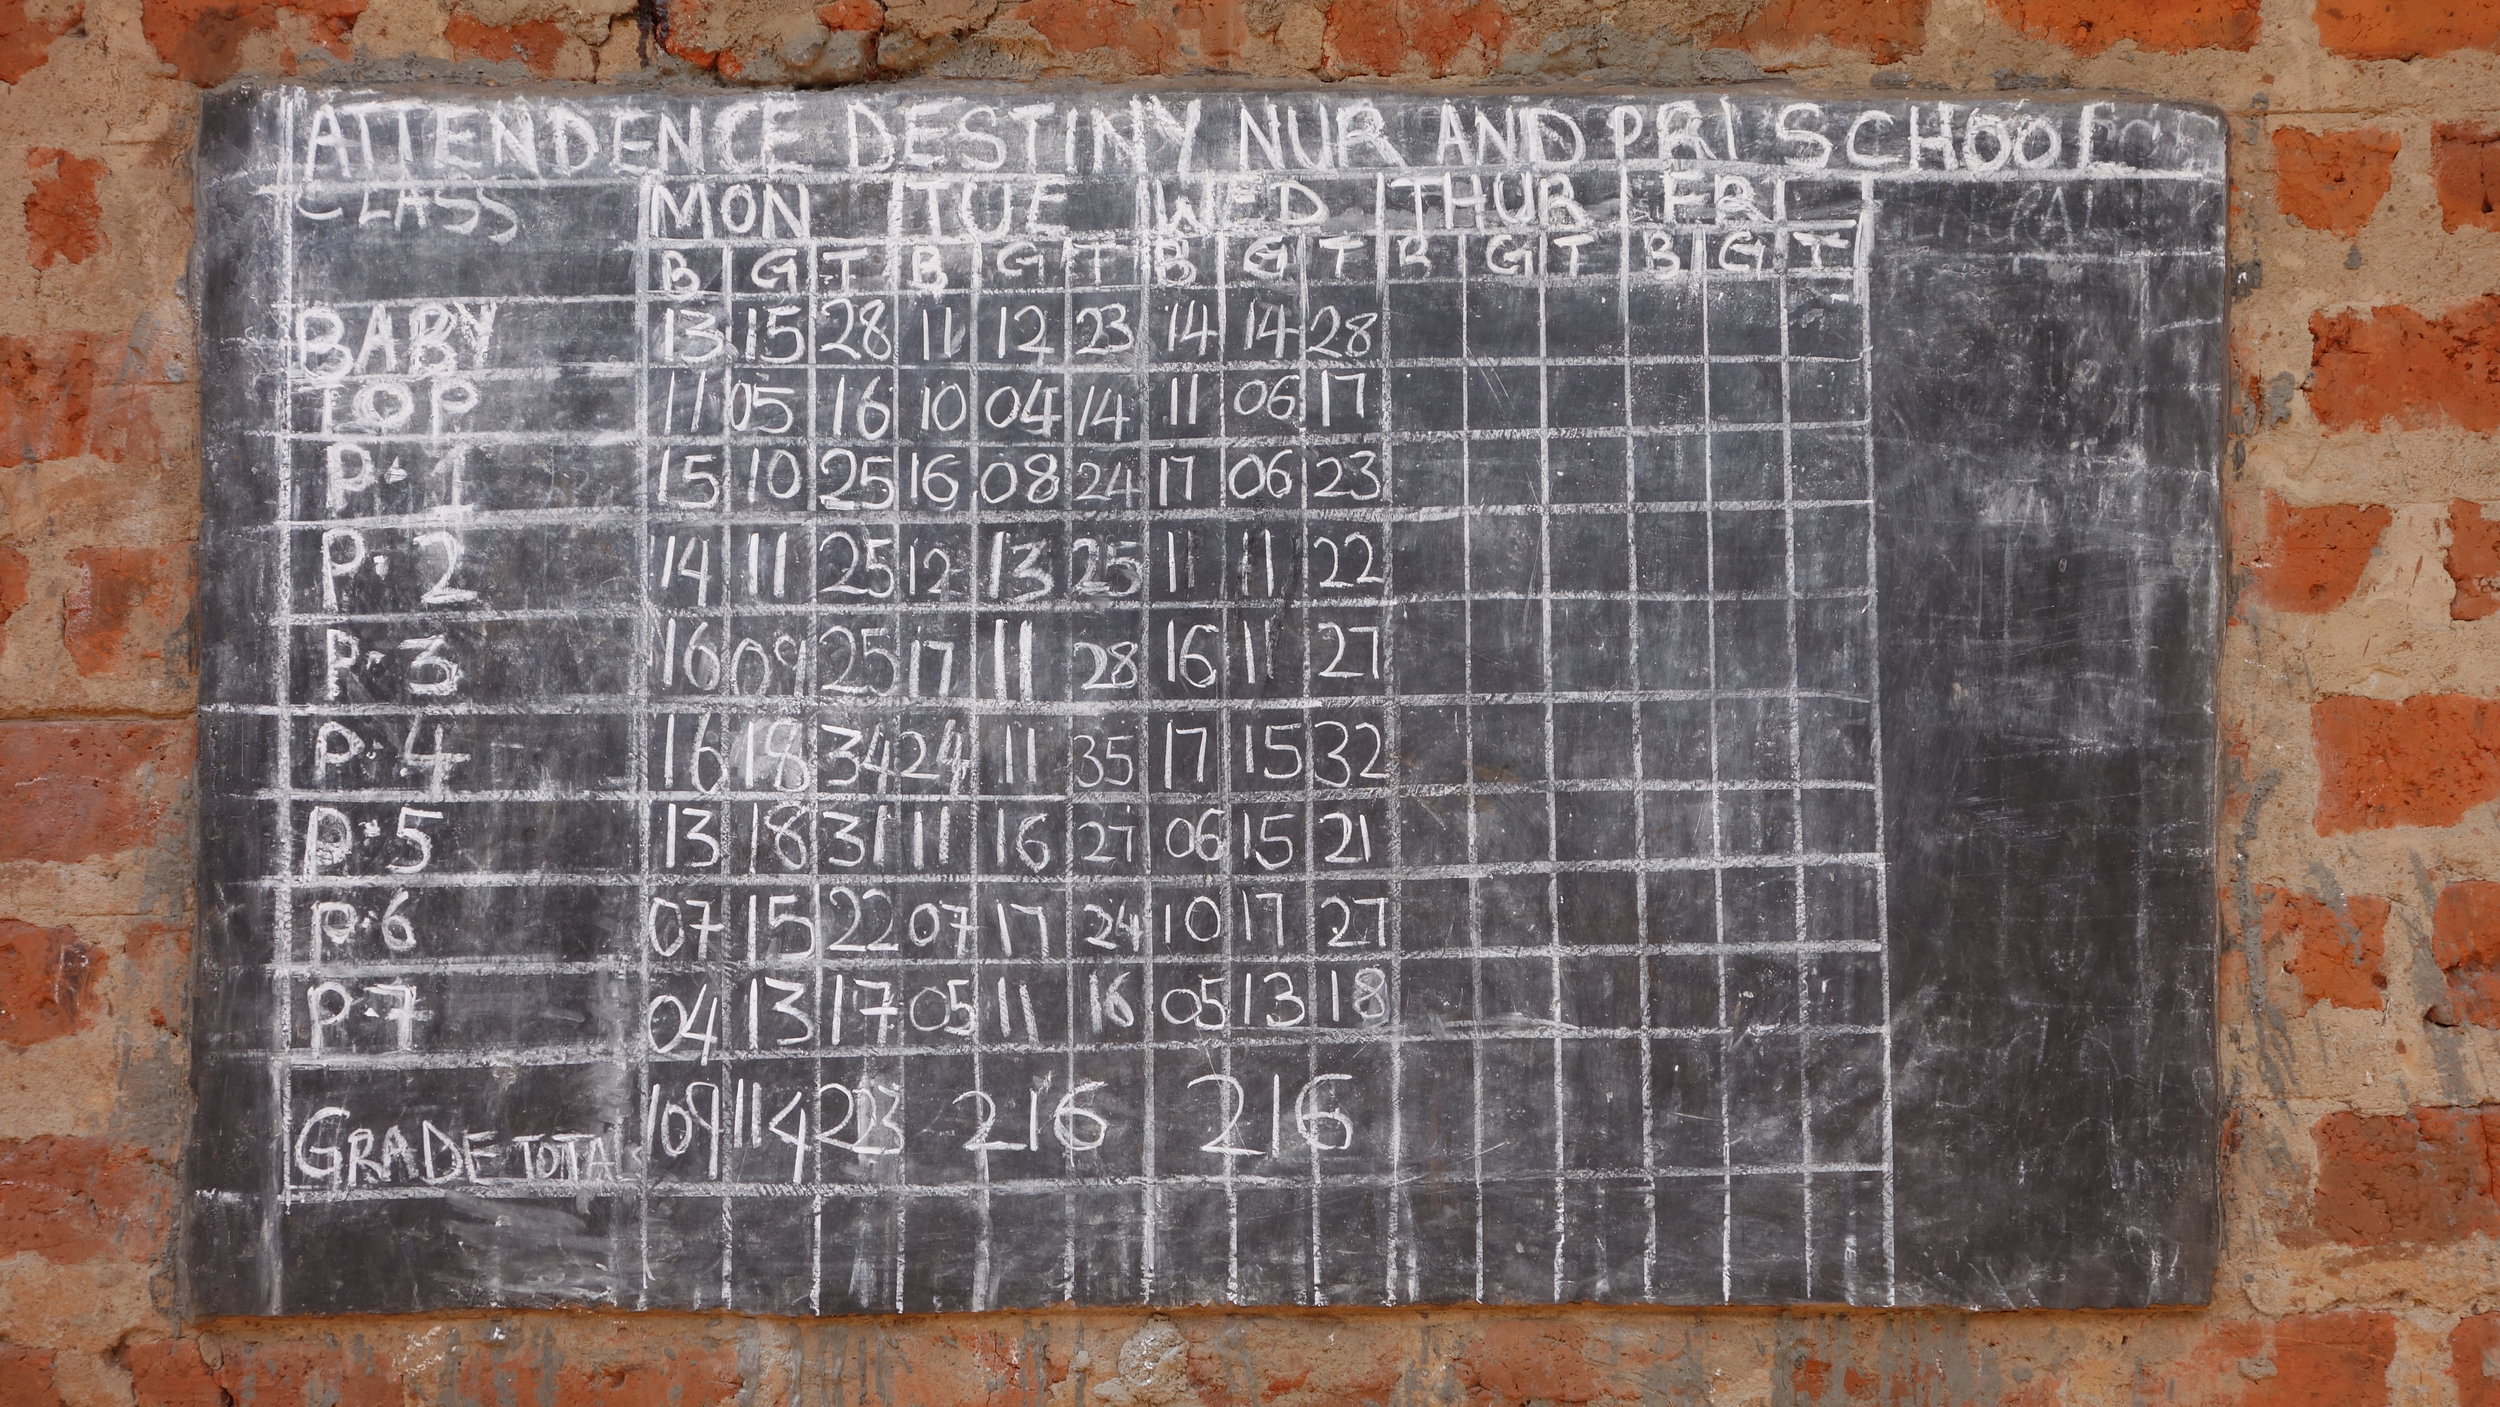 ATTENDENCE DESTINY NUR AND PRI SCHOOL
CLASS MON TUE WED THUR FRI
B G T B G T B G T B G T B G T
BABY 13 15 28 11 12 23 14 14 28
TOP 11 05 16 10 04 14 11 06 17
P.1 15 10 25 16 08 24 17 06 23
P.2 14 11 25 12 13 25 11 11 22
P.3 16 09 25 17 11 28 16 11 27
P.4 16 18 34 24 11 35 17 15 32
P.5 13 18 31 11 16 27 06 15 21
P.6 07 15 22 07 17 24 10 17 27
P.7 04 13 17 05 11 16 05 13 18
GRADE TOTAL 109 114 223 216 216